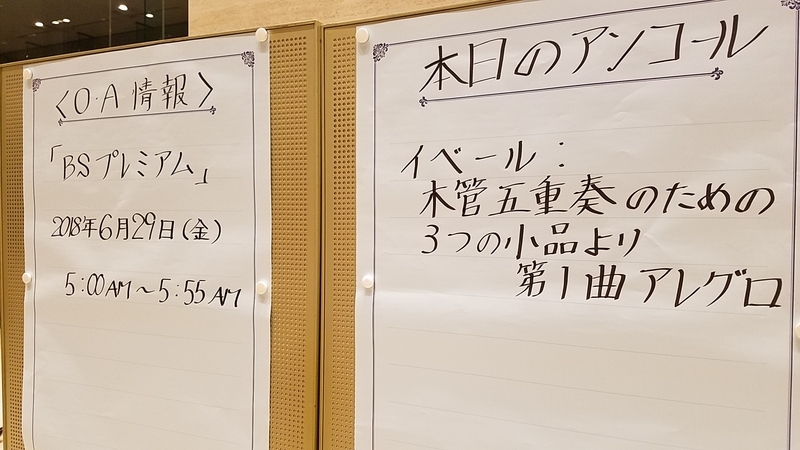 〈O・A 情報〉
「BSプレミアム」
2018年6月29日(金)
5:00AM〜5:55AM
本日のアンコール
イベール:
木管五重奏のための
3つの小品より
第1曲アレグロ